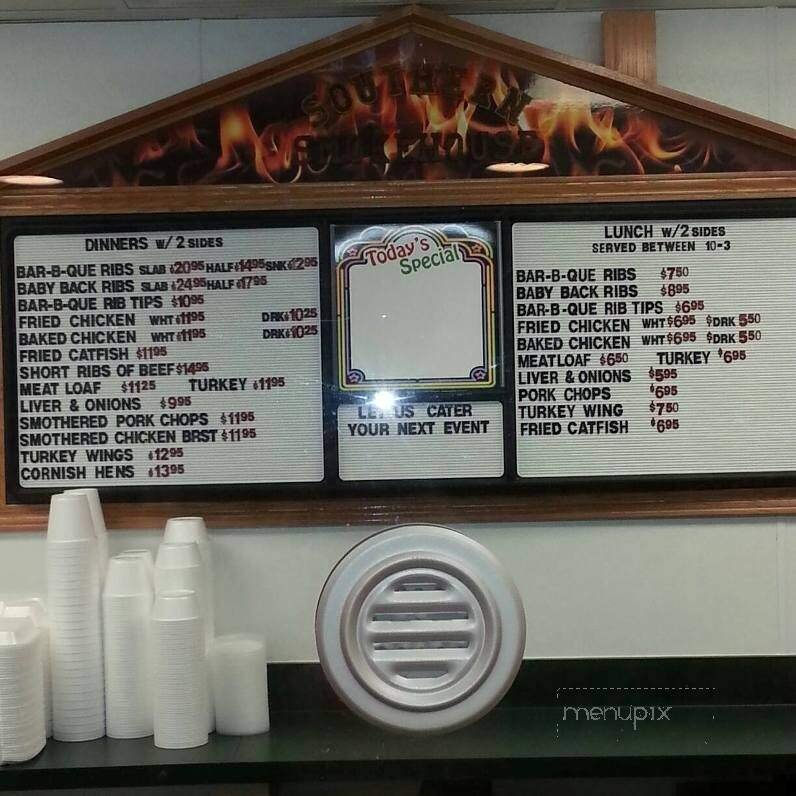 SOUTHERN
SMOKEHOUSE
DINNERS W/ 2 SIDES
BAR-B-QUE RIBS SLAB $2095 HALF $1495 SNK $1295
BABY BACK RIBS SLAB $2495 HALF $1795
BAR-B-QUE RIB TIPS $1095
FRIED CHICKEN WHT $1195 DRK $1025
BAKED CHICKEN WHT $1195 DRK $1025
FRIED CATFISH $1195
SHORT RIBS OF BEEF $1495
MEAT LOAF $1125 TURKEY $1195
LIVER & ONIONS $995
SMOTHERED PORK CHOPS $1195
SMOTHERED CHICKEN BRST $1195
TURKEY WINGS $1295
CORNISH HENS $1395
Today's
Special
LET US CATER
YOUR NEXT EVENT
LUNCH W/ 2 SIDES
SERVED BETWEEN 10-3
BAR-B-QUE RIBS $750
BABY BACK RIBS $895
BAR-B-QUE RIB TIPS $695
FRIED CHICKEN WHT $695 $DRK 550
BAKED CHICKEN WHT $695 $DRK 550
MEATLOAF $650 TURKEY $695
LIVER & ONIONS $595
PORK CHOPS $695
TURKEY WING $750
FRIED CATFISH $695
menupix